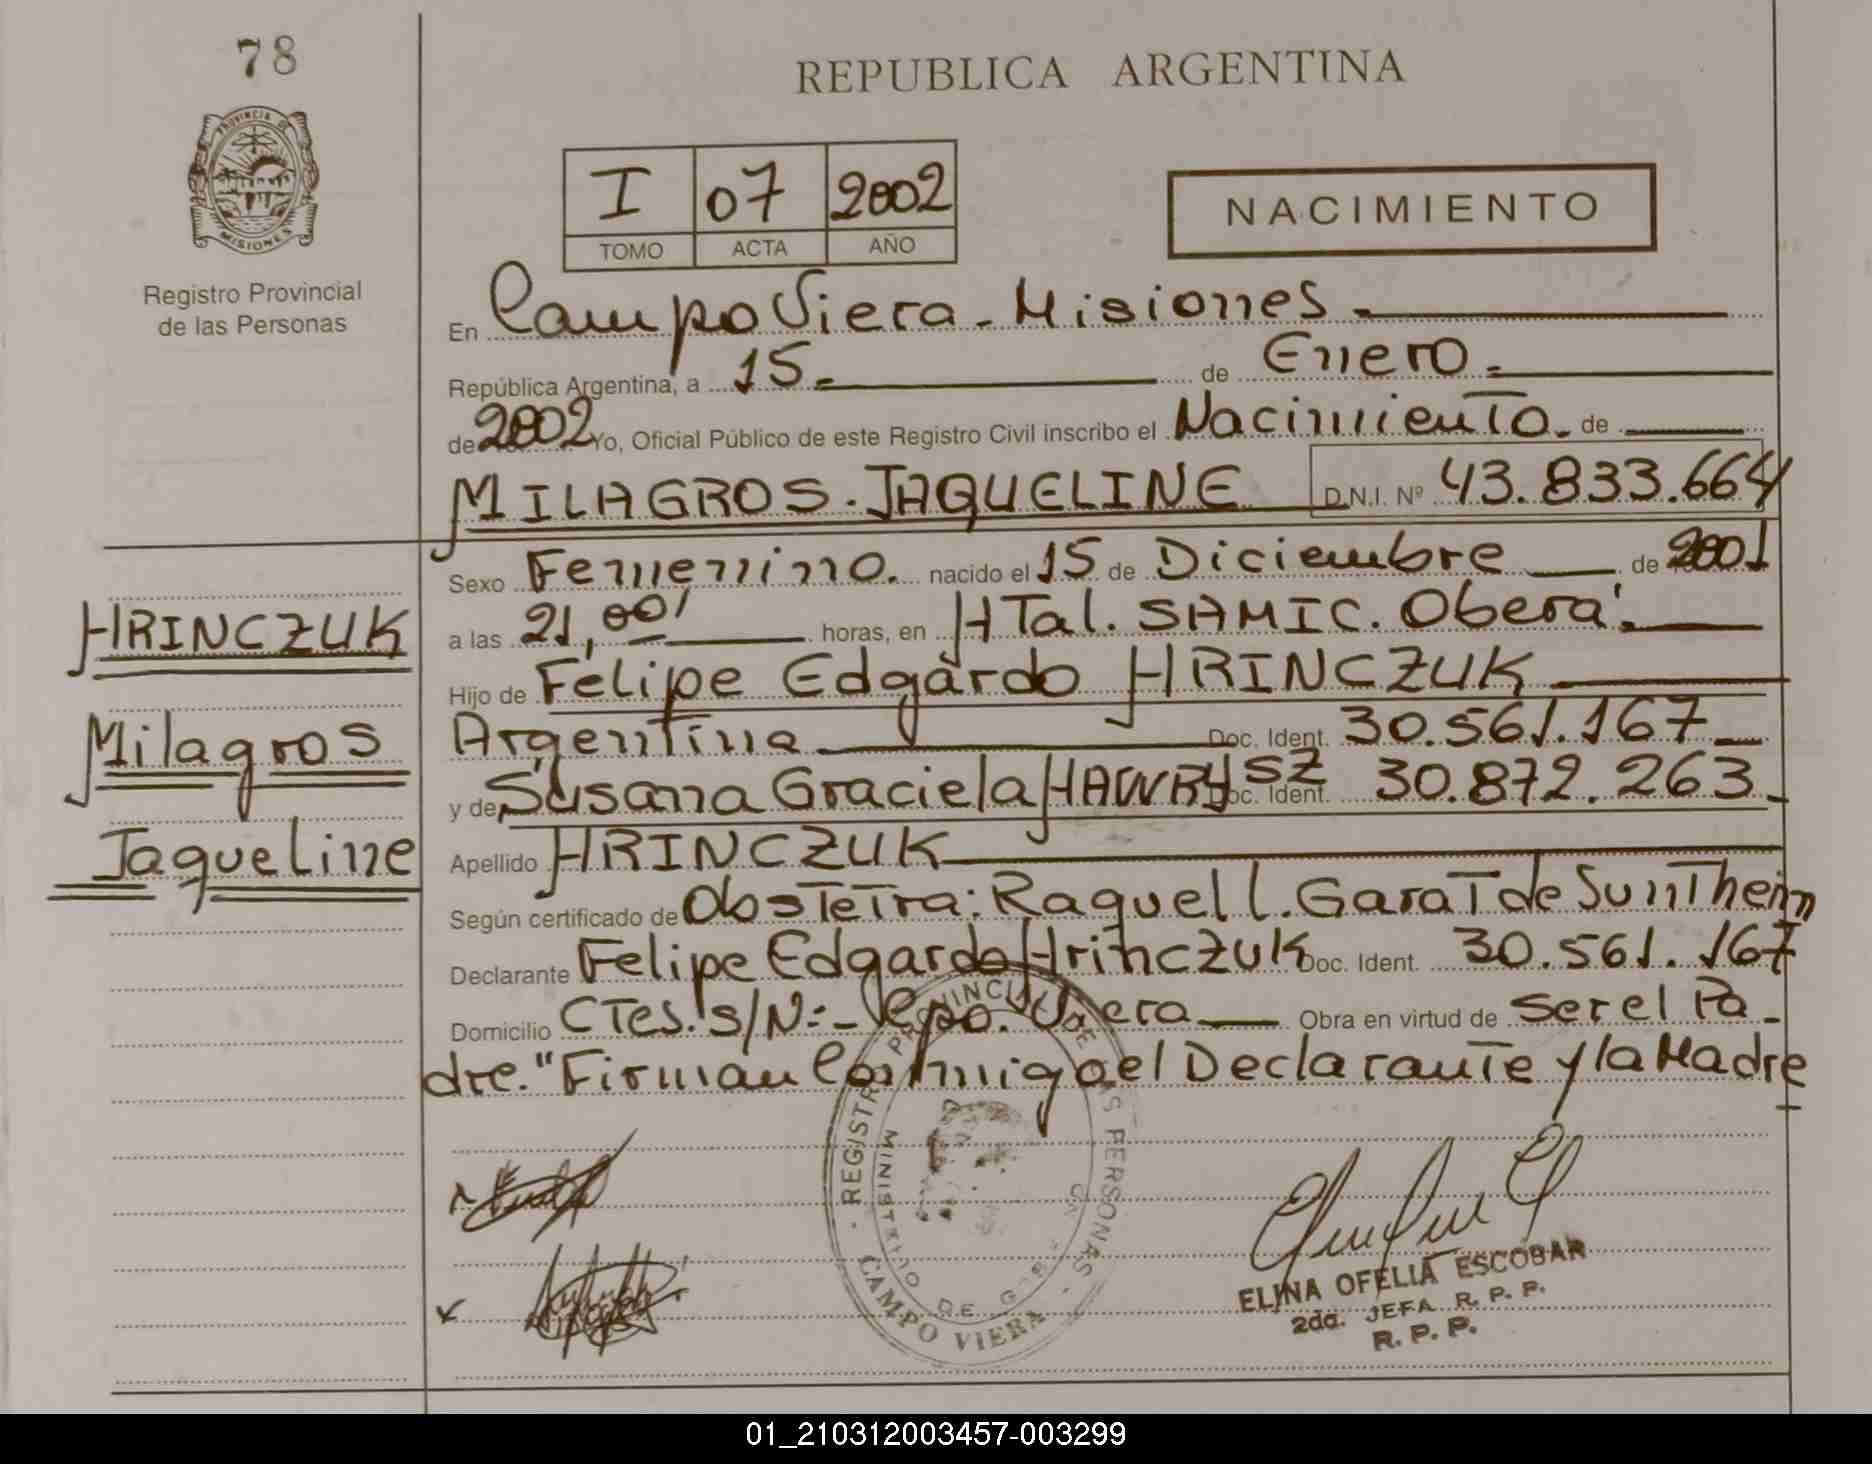 78
REPUBLICA ARGENTINA
PROVINCIA DE
MISIONES
Registro Provincial
de las Personas
I 07 2002
TOMO ACTA AÑO
NACIMIENTO
En Campo Viera - Misiones.
República Argentina, a 15. de Enero.
de 2002 Yo, Oficial Público de este Registro Civil inscribo el Nacimiento. de
MILAGROS. JAQUELINE D.N.I. Nº 43.833.664
Sexo Femenino. nacido el 15 de Diciembre de 2001
a las 21,00' horas, en HTal. SAMIC. Oberá.
Hijo de Felipe Edgardo HRINCZUK
Argentina Doc. Ident. 30.561.167
y de Susana Graciela HAWRYSZ Doc. Ident. 30.872.263
Apellido HRINCZUK
Según certificado de Obstetra: Raquel l. Garat de Suntheim
Declarante Felipe Edgardo Hrinczuk Doc. Ident. 30.561.167
Domicilio CTes. s/N:- Cpo. Viera Obra en virtud de ser el Pa-
dre. "Firman Conmigo el Declarante y la Madre
HRINCZUK
Milagros
Jaqueline
REGISTRO PROVINCIAL DE LAS PERSONAS
MINISTERIO DE GOB
CAMPO VIERA
ELINA OFELIA ESCOBAR
2da. JEFA R. P. P.
R. P. P.
01_210312003457-003299